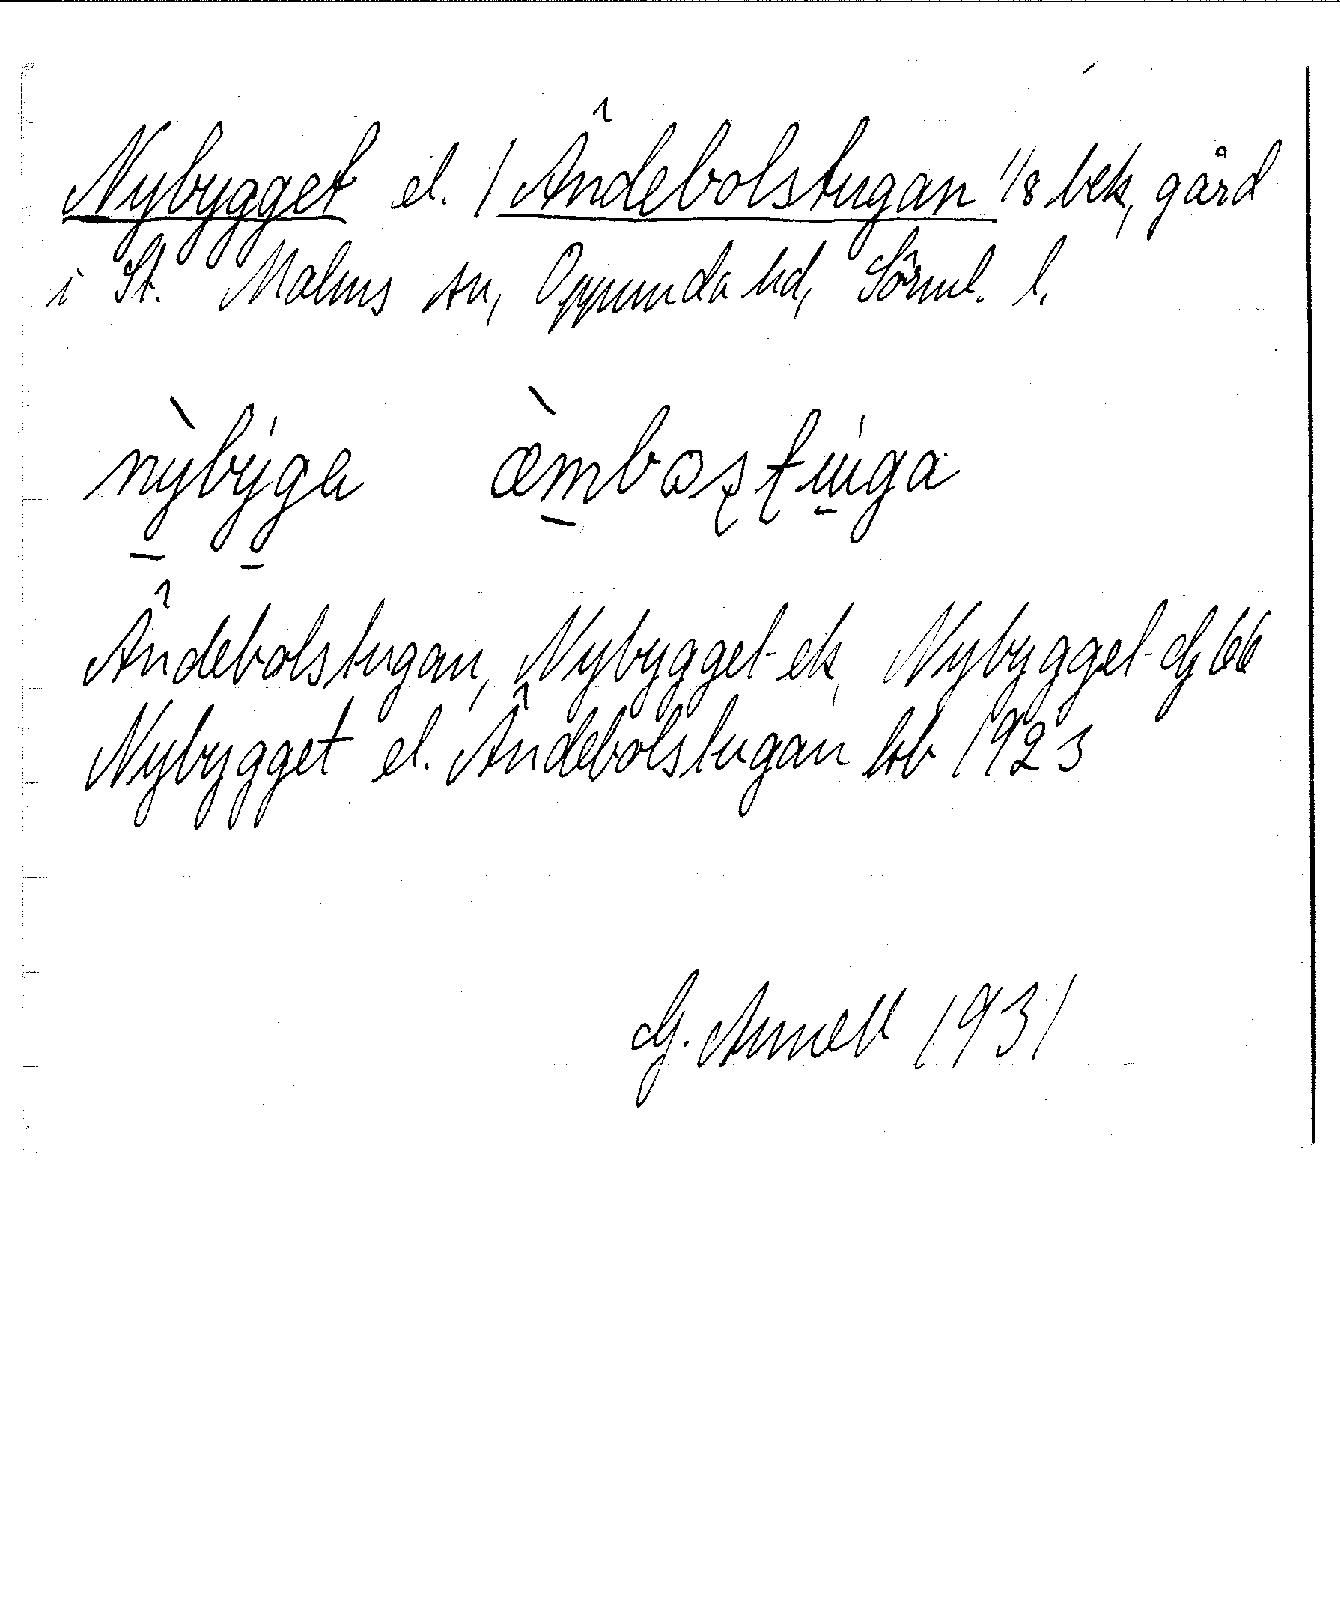 Nybygget el. / Ändebolstugan 1/8 bek, gård
i St. Malms sn, Oppunda hd, Sörml. l.
nỳby̍ga æ̀mbosṭu̍ga
Ändebolstugan, Nybygget ek, Nybygget Gj 66
Nybygget el. Ändebolstugan Job 1923
G. Annell 1931